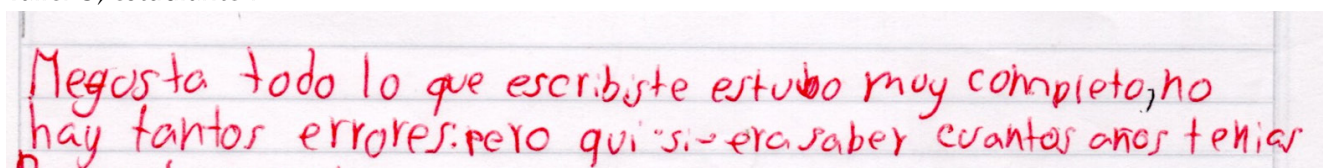 Megusta todo lo que escribiste estubo muy completo, no
hay tantos errores. pero quisiera saber cuantos años tenias